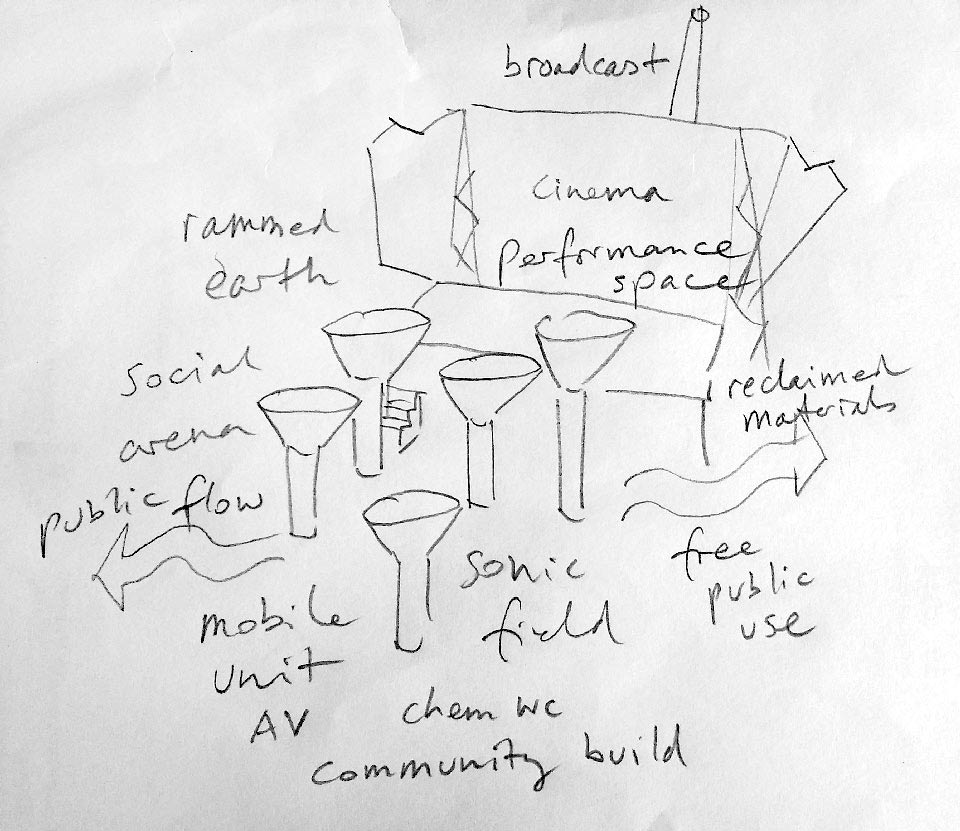 broadcast
cinema
performance
space
rammed
earth
social
arena
public flow
reclaimed
materials
sonic
field
free
public
use
mobile
unit
AV
chem wc
community build